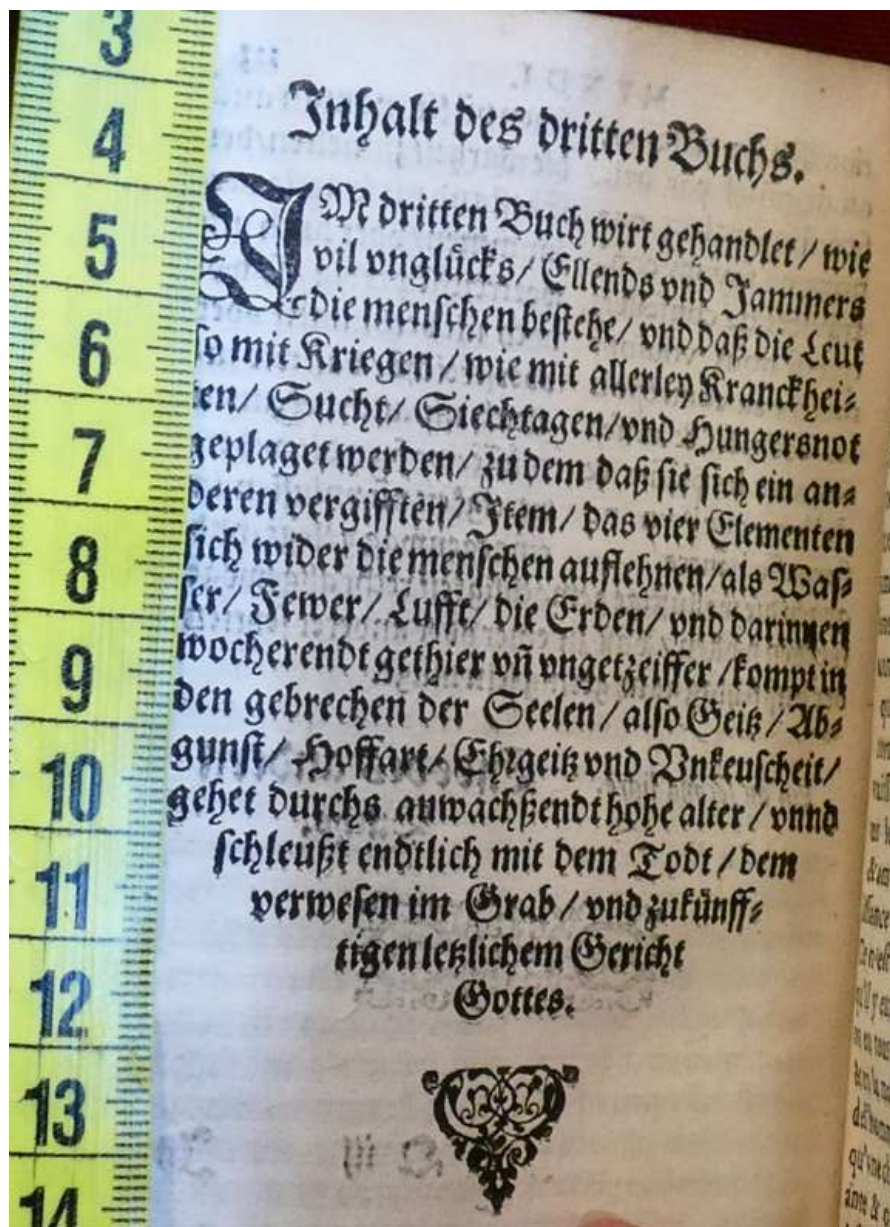 3
4
5
6
7
8
9
10
11
12
13
14
Inhalt des dritten Buchs.
IM dritten Buch wirt gehandlet / wie
vil vnglücks / Ellends vnd Jammers
die menschen bestehe / vnd daß die Leut
so mit Kriegen / wie mit allerley Kranckhei⸗
ten / Sucht / Siechtagen / vnd Hungersnot
geplaget werden / zu dem daß sie sich ein an⸗
deren vergifften / Item / das vier Elementen
sich wider die menschen auflehnen / als Was⸗
ser / Fewer / Lufft / die Erden / vnd darinnen
wocherendt gethier vñ vngetzeiffer / kompt in
den gebrechen der Seelen / also Geitz / Ab⸗
gunst / Hoffart / Ehrgeitz vnd Vnkeuscheit /
gehet durchs anwachßendt hohe alter / vnnd
schleußt endtlich mit dem Todt / dem
verwesen im Grab / vnd zukünff⸗
tigen letzlichem Gericht
Gottes.